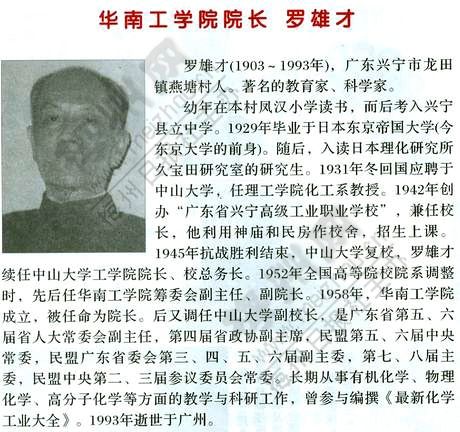 华南工学院院长 罗雄才
罗雄才(1903~1993年)，广东兴宁市龙田
镇燕塘村人。著名的教育家、科学家。
幼年在本村凤汉小学读书，而后考入兴宁
县立中学。1929年毕业于日本东京帝国大学(今
东京大学的前身)。随后，入读日本理化研究所
久宝田研究室的研究生。1931年冬回国应聘于
中山大学，任理工学院化工系教授。1942年创
办“广东省兴宁高级工业职业学校”，兼任校
长，他利用神庙和民房作校舍，招生上课。
1945年抗战胜利结束，中山大学复校，罗雄才
续任中山大学工学院院长、校总务长。1952年全国高等院校院系调整
时，先后任华南工学院筹委会副主任、副院长。1958年，华南工学院
成立，被任命为院长。后又调任中山大学副校长，是广东省第五、六
届省人大常委会副主任，第四届省政协副主席，民盟第五、六届中央
常委，民盟广东省委会第三、四、五、六届副主委，第七、八届主
委，民盟中央第二、三届参议委员会常委。长期从事有机化学、物理
化学、高分子化学等方面的教学与科研工作，曾参与编撰《最新化学
工业大全》。1993年逝世于广州。